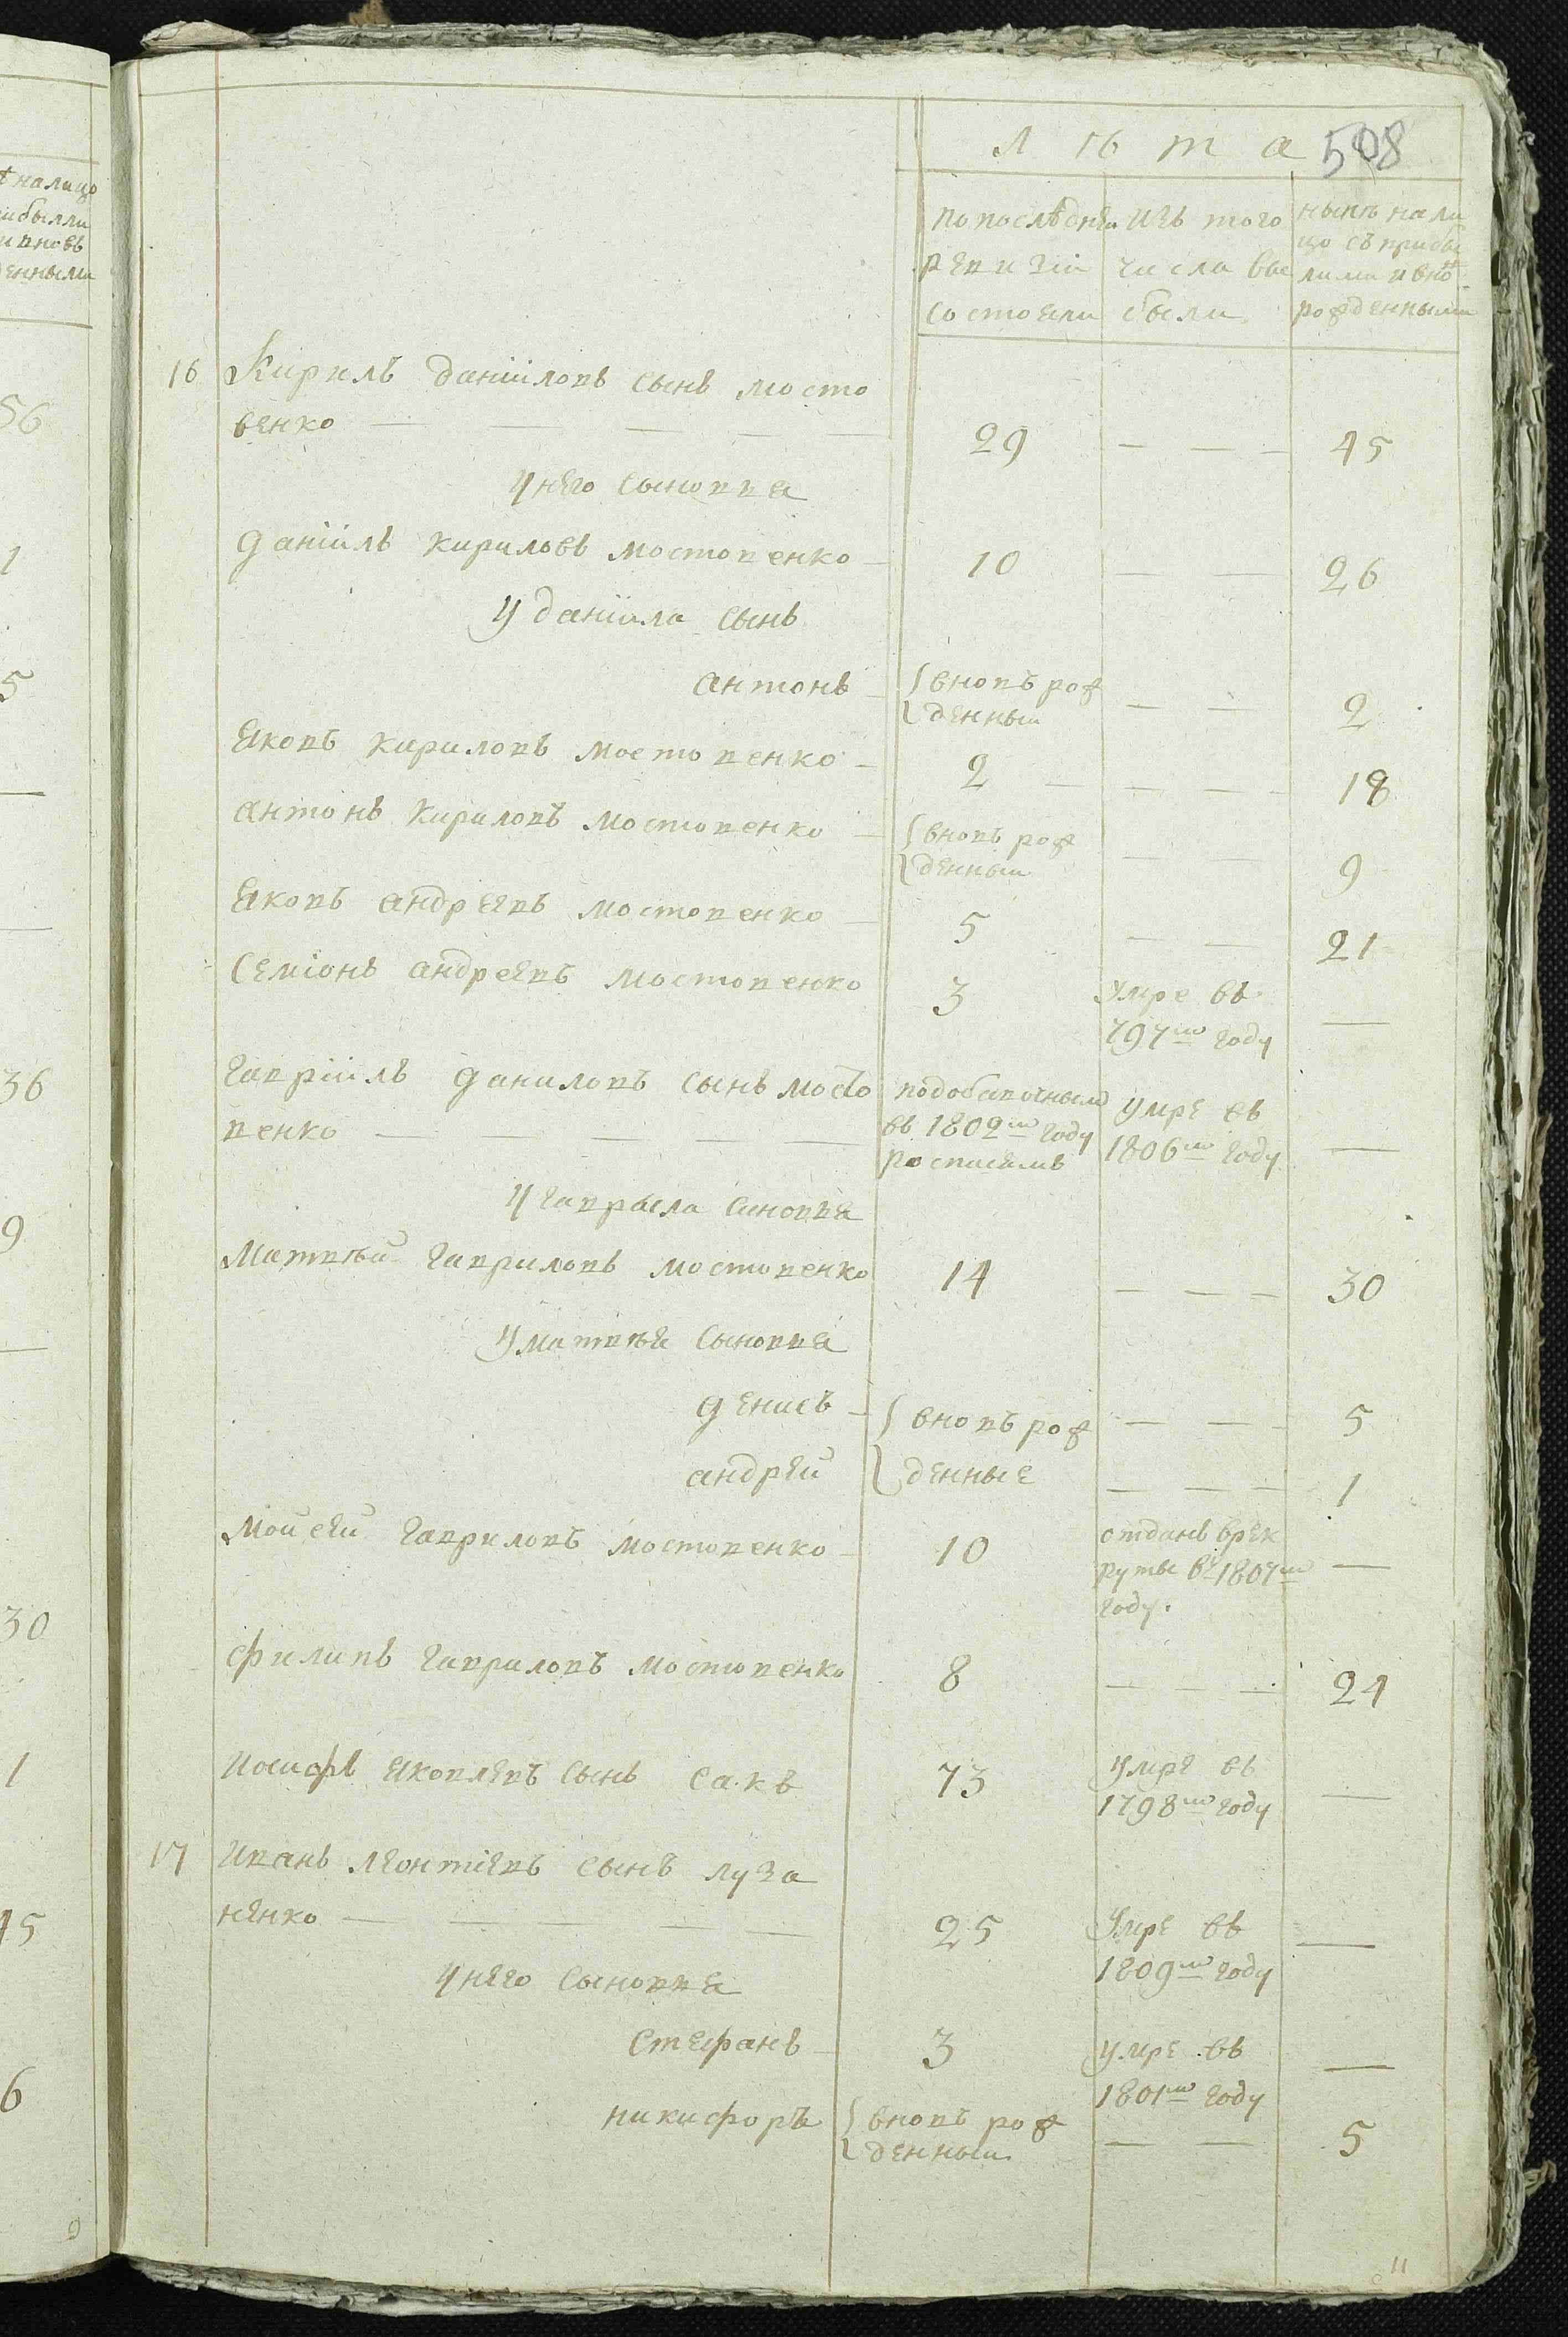 Лѣта 508
по послѣдней
ревизіи
состояли
изъ того
числа вы
были
нынѣ нали
цо съ прибы
лими и вно
рожденными
16 Кирилъ даніиловъ сынъ мосто
венко — — — — — 29 — — — 45
у него сыновья
даніилъ кириловъ мостовенко — 10 — — 26
у даніила сынъ
антонъ — вновь рож
денный — — 2
яковъ кириловъ мостовенко — 2 — — — — 18
антонъ кириловъ мостовенко — вновь рож
денный — — 9
яковъ андреевъ мостовенко — 5 — — 21
семіонъ андреевъ мостовенко 3 умре въ
797мъ году —
гавріилъ даниловъ сынъ мосто
венко — — — — —
подобавочнымъ
въ 1802мъ году
росписямъ
умре въ
1806мъ году —
у гаврыла синовья
Матвѣй гавриловъ мостовенко 14 — — — 30
у матвѣя сыновья
денисъ — вновь рож — — — 5
андрей денные — — — 1
Моисей гавриловъ мостовенко — 10 отданъ врек
руты въ 1807мъ —
году.
филипъ гавриловъ мостовенко 8 — — — 24
иосифъ яковлевъ сынъ сакъ 73 умре въ
1798мъ году —
17 иванъ леонтіевъ сынъ луза
ненко — — — — — 25 умре въ —
1809мъ году
у него сыновья
стефанъ — 3 умре въ —
1801мъ году
никифоръ вновь рож
денный — — 5
11
ѣ налицо
ибыли
и вновь
енными
56
1
5
—
—
36
9
—
30
1
45
6